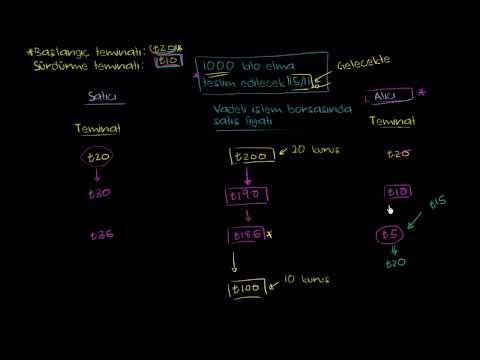 *Başlangıç teminatı: ₺20*
Sürdürme teminatı: ₺10
1000 kilo elma
teslim edilecek 15/11
Gelecekte
Satıcı
Vadeli işlem borsasında
satış fiyatı
Alıcı
Teminat
Teminat
₺20
₺200
20 kuruş
₺20
₺30
₺190
₺10
₺15
₺35
₺185*
₺5
₺20
₺100
10 kuruş